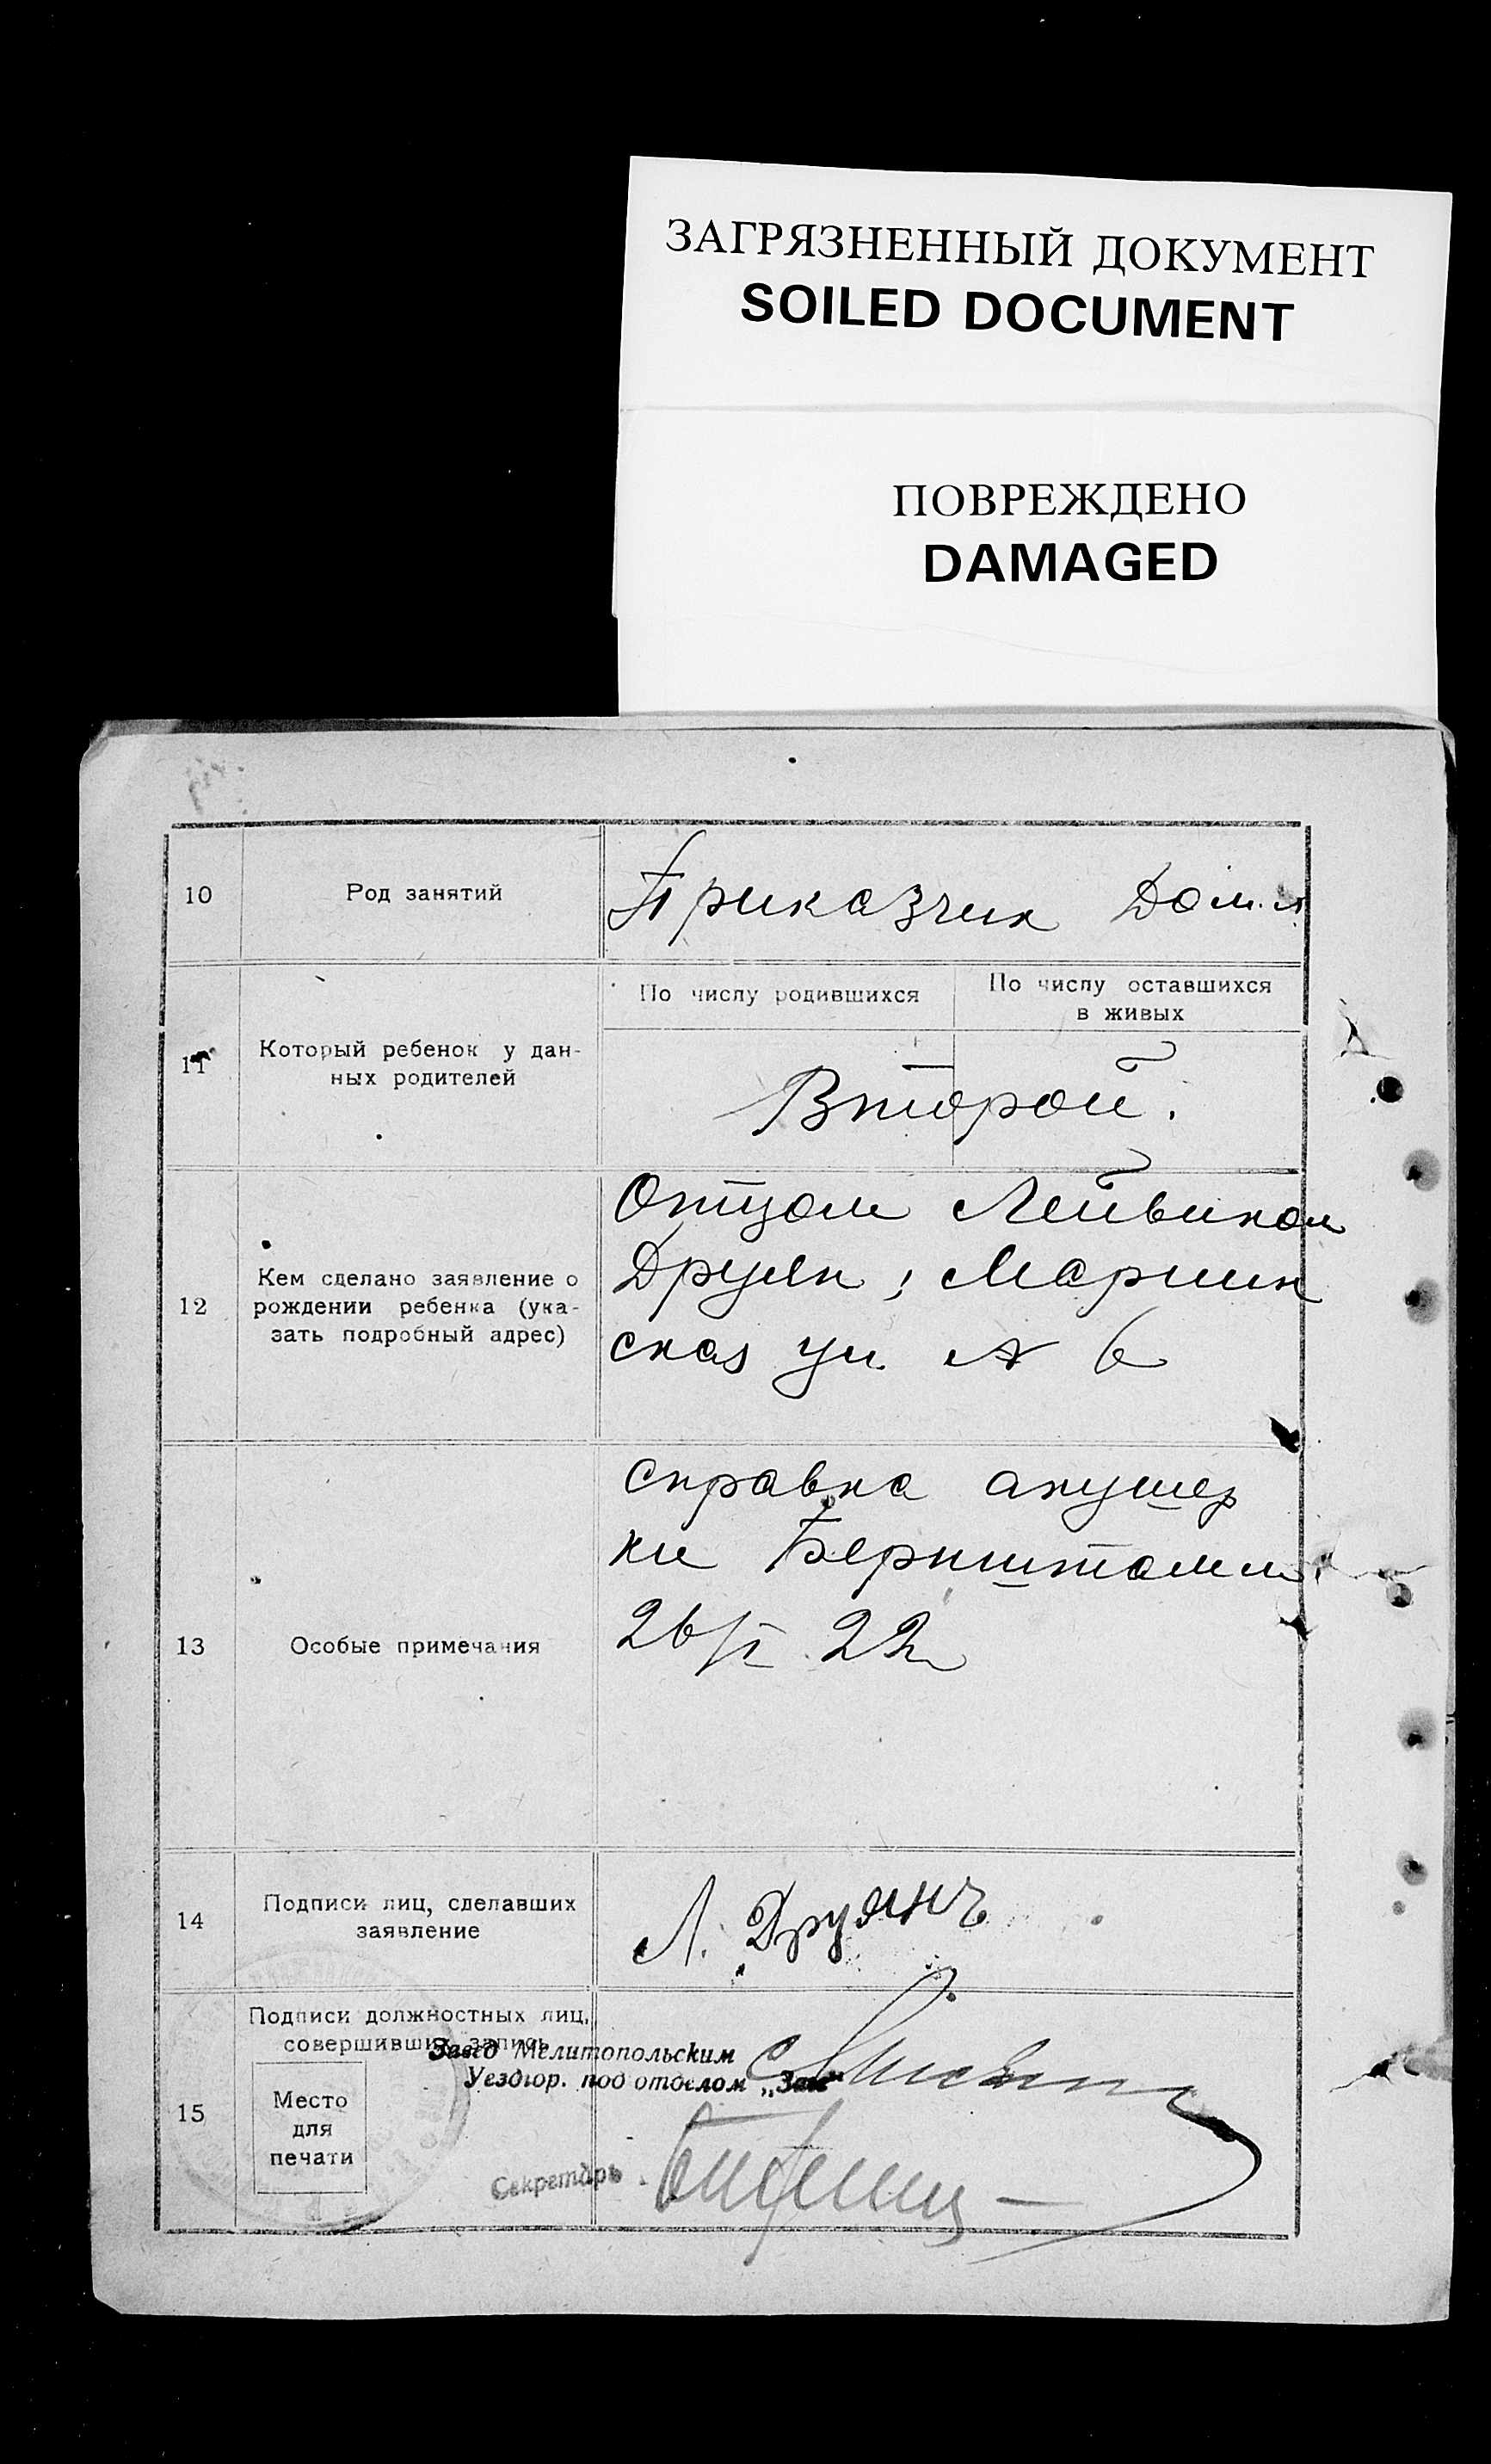 ЗАГРЯЗНЕННЫЙ ДОКУМЕНТ
SOILED DOCUMENT
ПОВРЕЖДЕНО
DAMAGED
10 Род занятий Приказчик Дом.
По числу родившихся По числу оставшихся
в живых
11 Который ребенок у дан-
ных родителей
Второй.
12 Кем сделано заявление о
рождении ребенка (ука-
зать подробный адрес)
Отцом Лейвиком
Друян, Мариин
ская ул. № 6
13 Особые примечания
Справка акушер
ки Бернштам
26/X 22
14 Подписи лиц, сделавших
заявление
Л. Друянъ
15 Подписи должностных лиц,
совершивших запись
Завед Мелитопольским
Уездгор. под отделом „Загс“
Место
для
печати
Секретарь